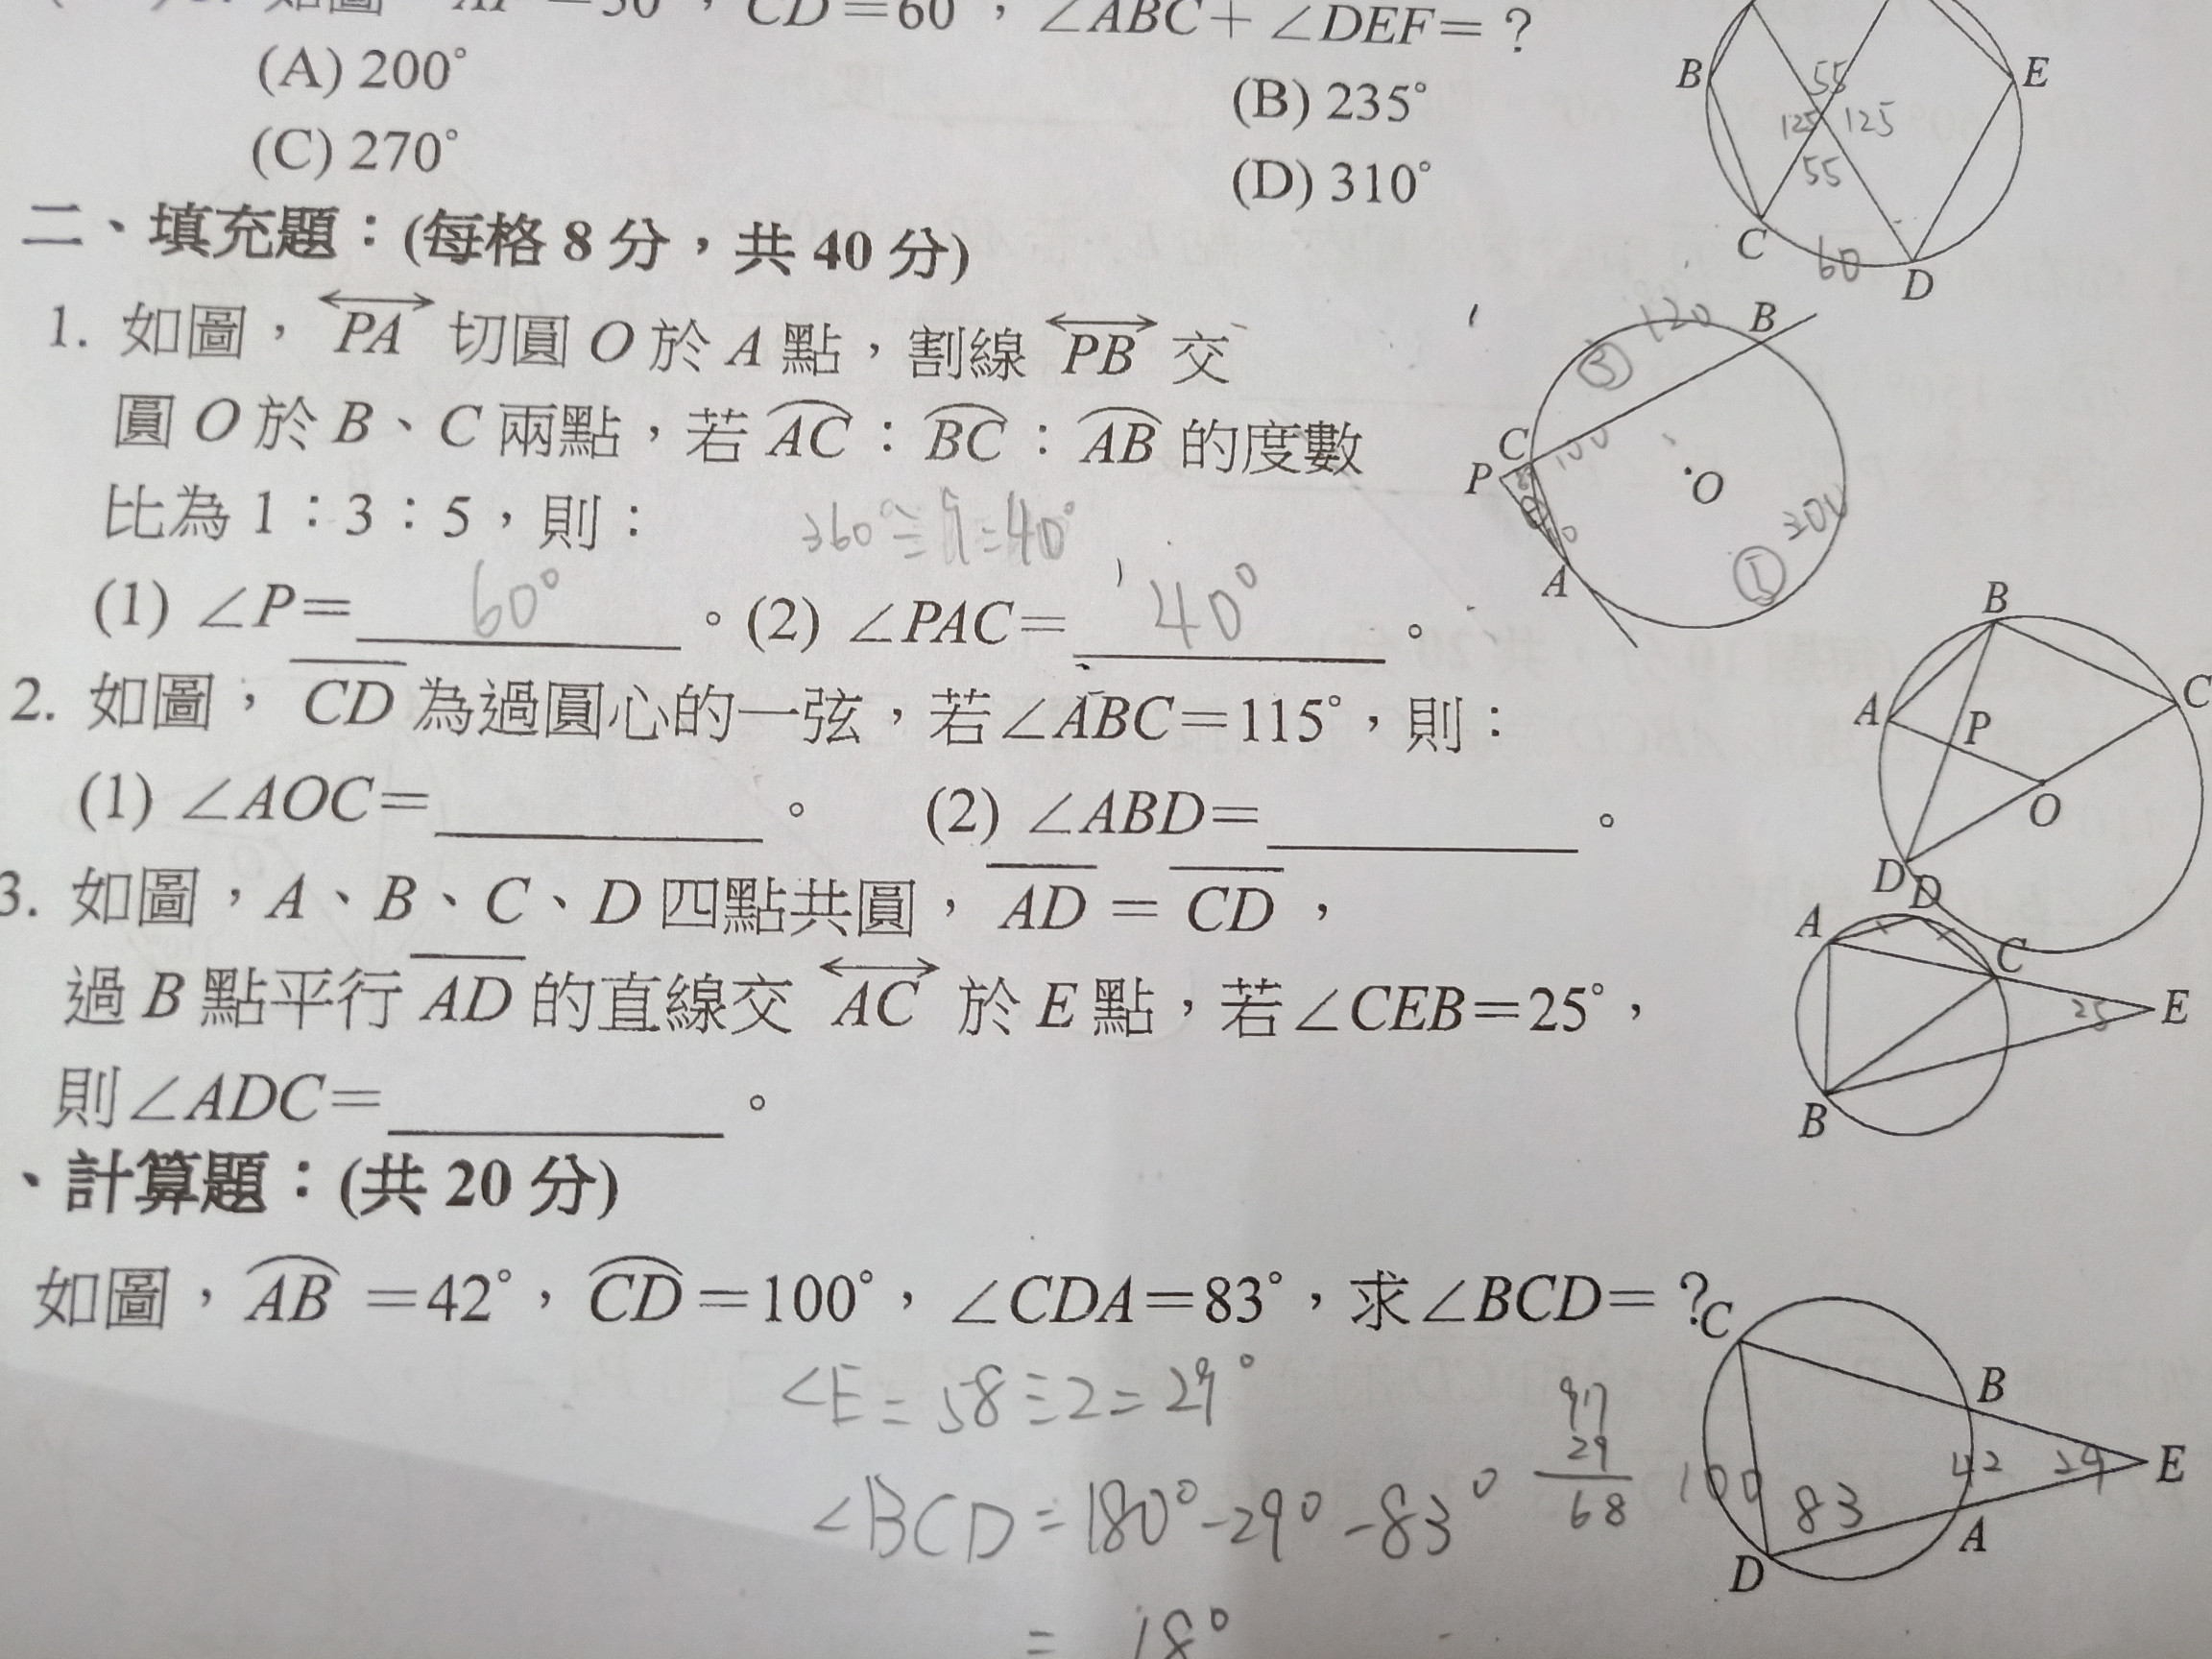 CD=60°,∠ABC+∠DEF=?
(A) 200°
(B) 235°
(C) 270°
(D) 310°
B
E
C
D
55
125
125
55
60
二、填充題:(每格8分,共40分)
1. 如圖,PA 切圓 O 於 A 點,割線 PB 交
圓 O 於 B、C 兩點,若 AC:BC:AB 的度數
比為 1:3:5,則:
360°÷9=40°
(1) ∠P= 60° 。(2) ∠PAC= 40° 。
B
120
③
C
100
P
O
A
200
2. 如圖,CD 為過圓心的一弦,若∠ABC=115°,則:
(1) ∠AOC= 。 (2) ∠ABD= 。
B
A
P
C
O
D
3. 如圖,A、B、C、D 四點共圓,AD = CD,
過 B 點平行 AD 的直線交 AC 於 E 點,若∠CEB=25°,
則∠ADC= 。
D
A
C
E
25
B
、計算題:(共 20 分)
如圖,AB =42°,CD=100°,∠CDA=83°,求∠BCD=?
∠E=58÷2=29°
∠BCD=180°-29°-83°
97
29
68
= 
C
B
E
A
D
100
83
42
29